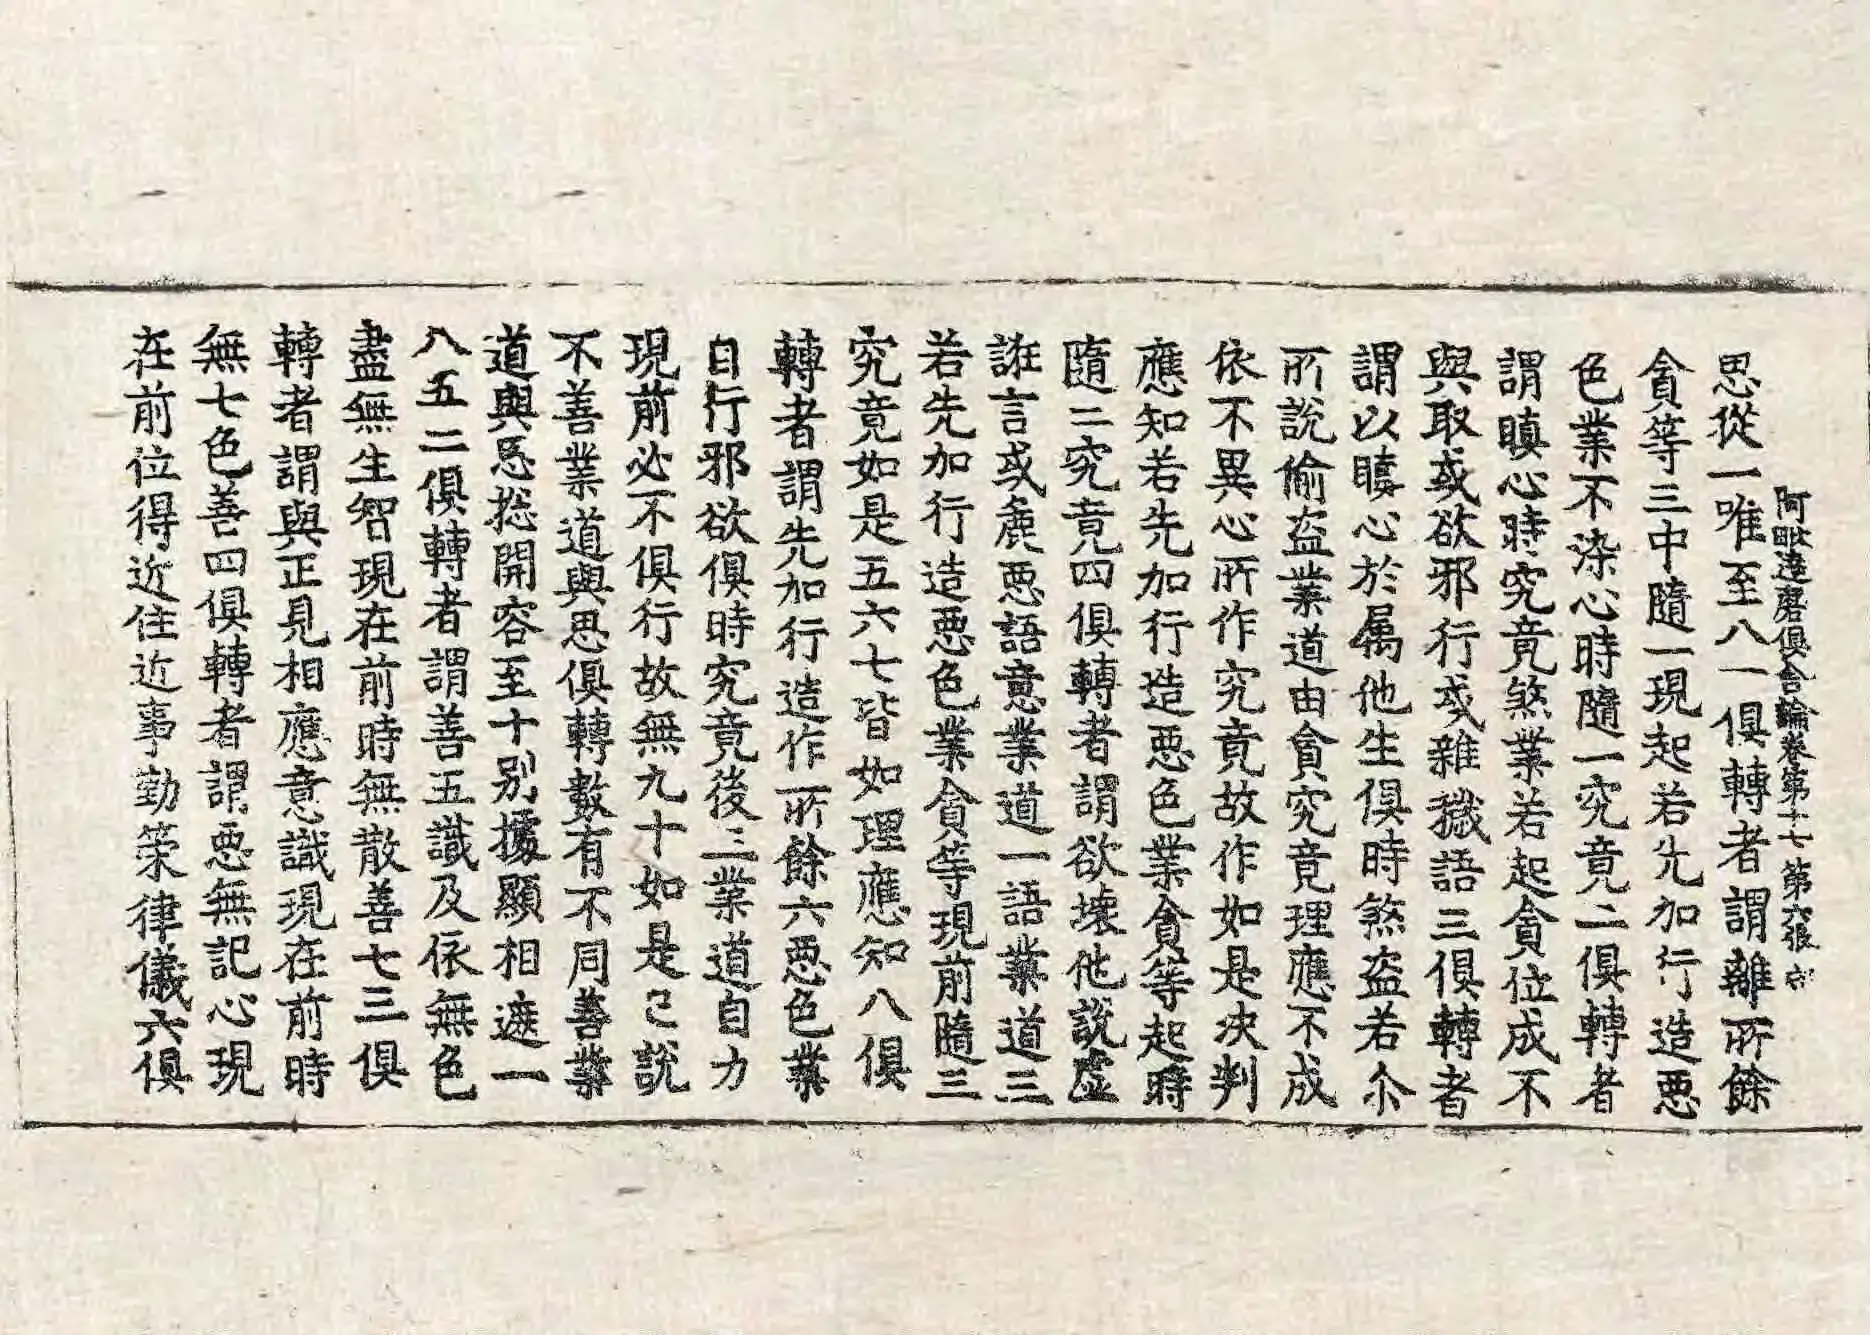 阿毗達磨俱舍論卷第十七 第六張
思從一唯至八一俱轉者謂離所餘
貪等三中隨一現起若先加行造惡
色業不染心時隨一究竟二俱轉者
謂瞋心時究竟煞業若起貪位成不
與取或欲邪行或雜穢語三俱轉者
謂以瞋心於属他生俱時煞盜若尒
所說偷盜業道由貪究竟理應不成
依不異心所作究竟故作如是決判
應知若先加行造惡色業貪等起時
隨二究竟四俱轉者謂欲壞他說虛
誑言或麁惡語意業道一語業道三
若先加行造惡色業貪等現前隨三
究竟如是五六七皆如理應知八俱
轉者謂先加行造作所餘六惡色業
自行邪欲俱時究竟後三業道自力
現前必不俱行故無九十如是已說
不善業道與思俱轉數有不同善業
道與思捴開容至十別據顯相遮一
八五二俱轉者謂善五識及依無色
盡無生智現在前時無散善七三俱
轉者謂與正見相應意識現在前時
無七色善四俱轉者謂惡無記心現
在前位得近住近事勤策律儀六俱